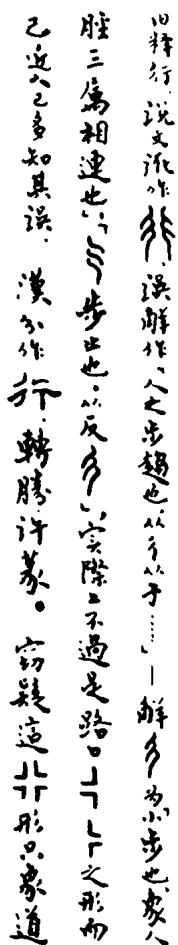 旧释行，说文讹作𧗟，误解作「人之步趋也，从彳从亍……」—解彳为「小步也，象人
胫三属相连也」，「亍步止也，从反彳」，实际上不过是路口之形而
已，近人已多知其误。汉分作行，转胜许篆。窃疑这形只象道